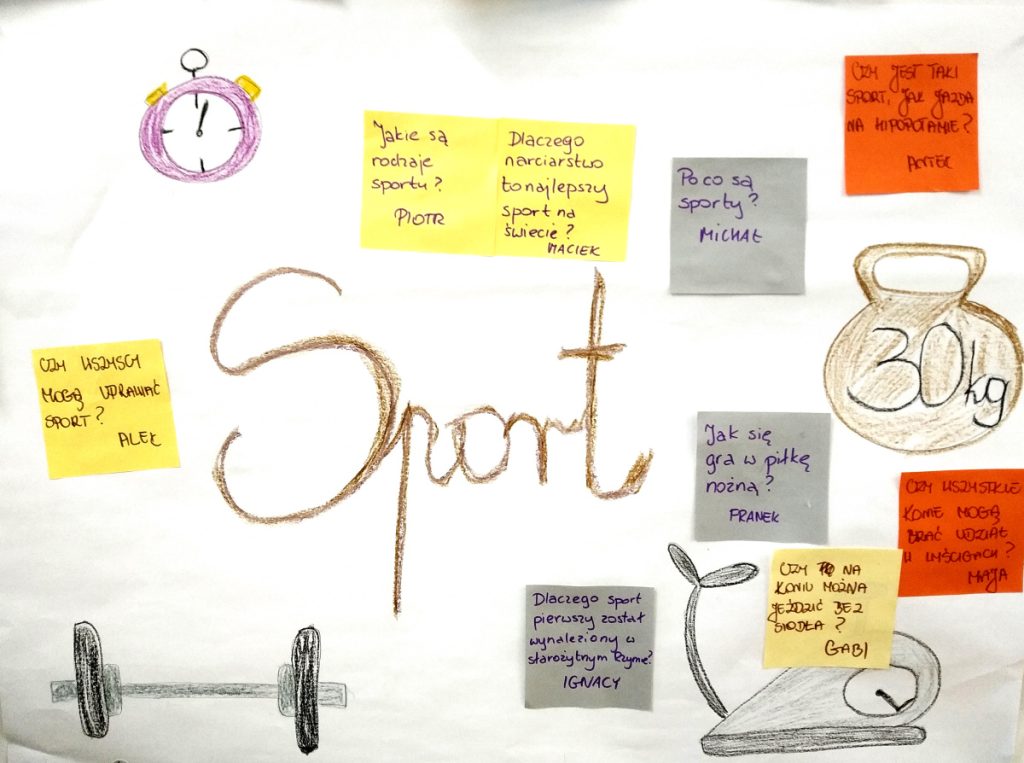 CZY JEST TAKI
SPORT, JAK JAZDA
NA HIPOPOTAMIE?
ANTEK
Jakie są
rodzaje
sportu?
PIOTR
Dlaczego
narciarstwo
to najlepszy
sport na
świecie?
MACIEK
Po co są
sporty?
MICHAŁ
Sport
30kg
CZY WSZYSCY
MOGĄ UPRAWIAĆ
SPORT?
ALEK
Jak się
gra w piłkę
nożną?
FRANEK
CZY WSZYSTKIE
KONIE MOGĄ
BRAĆ UDZIAŁ
W WYŚCIGACH?
MAJA
CZY NA
KONIU MOŻNA
JEŹDZIĆ BEZ
SIODŁA?
GABI
Dlaczego sport
pierwszy został
wynaleziony w
starożytnym Rzymie?
IGNACY